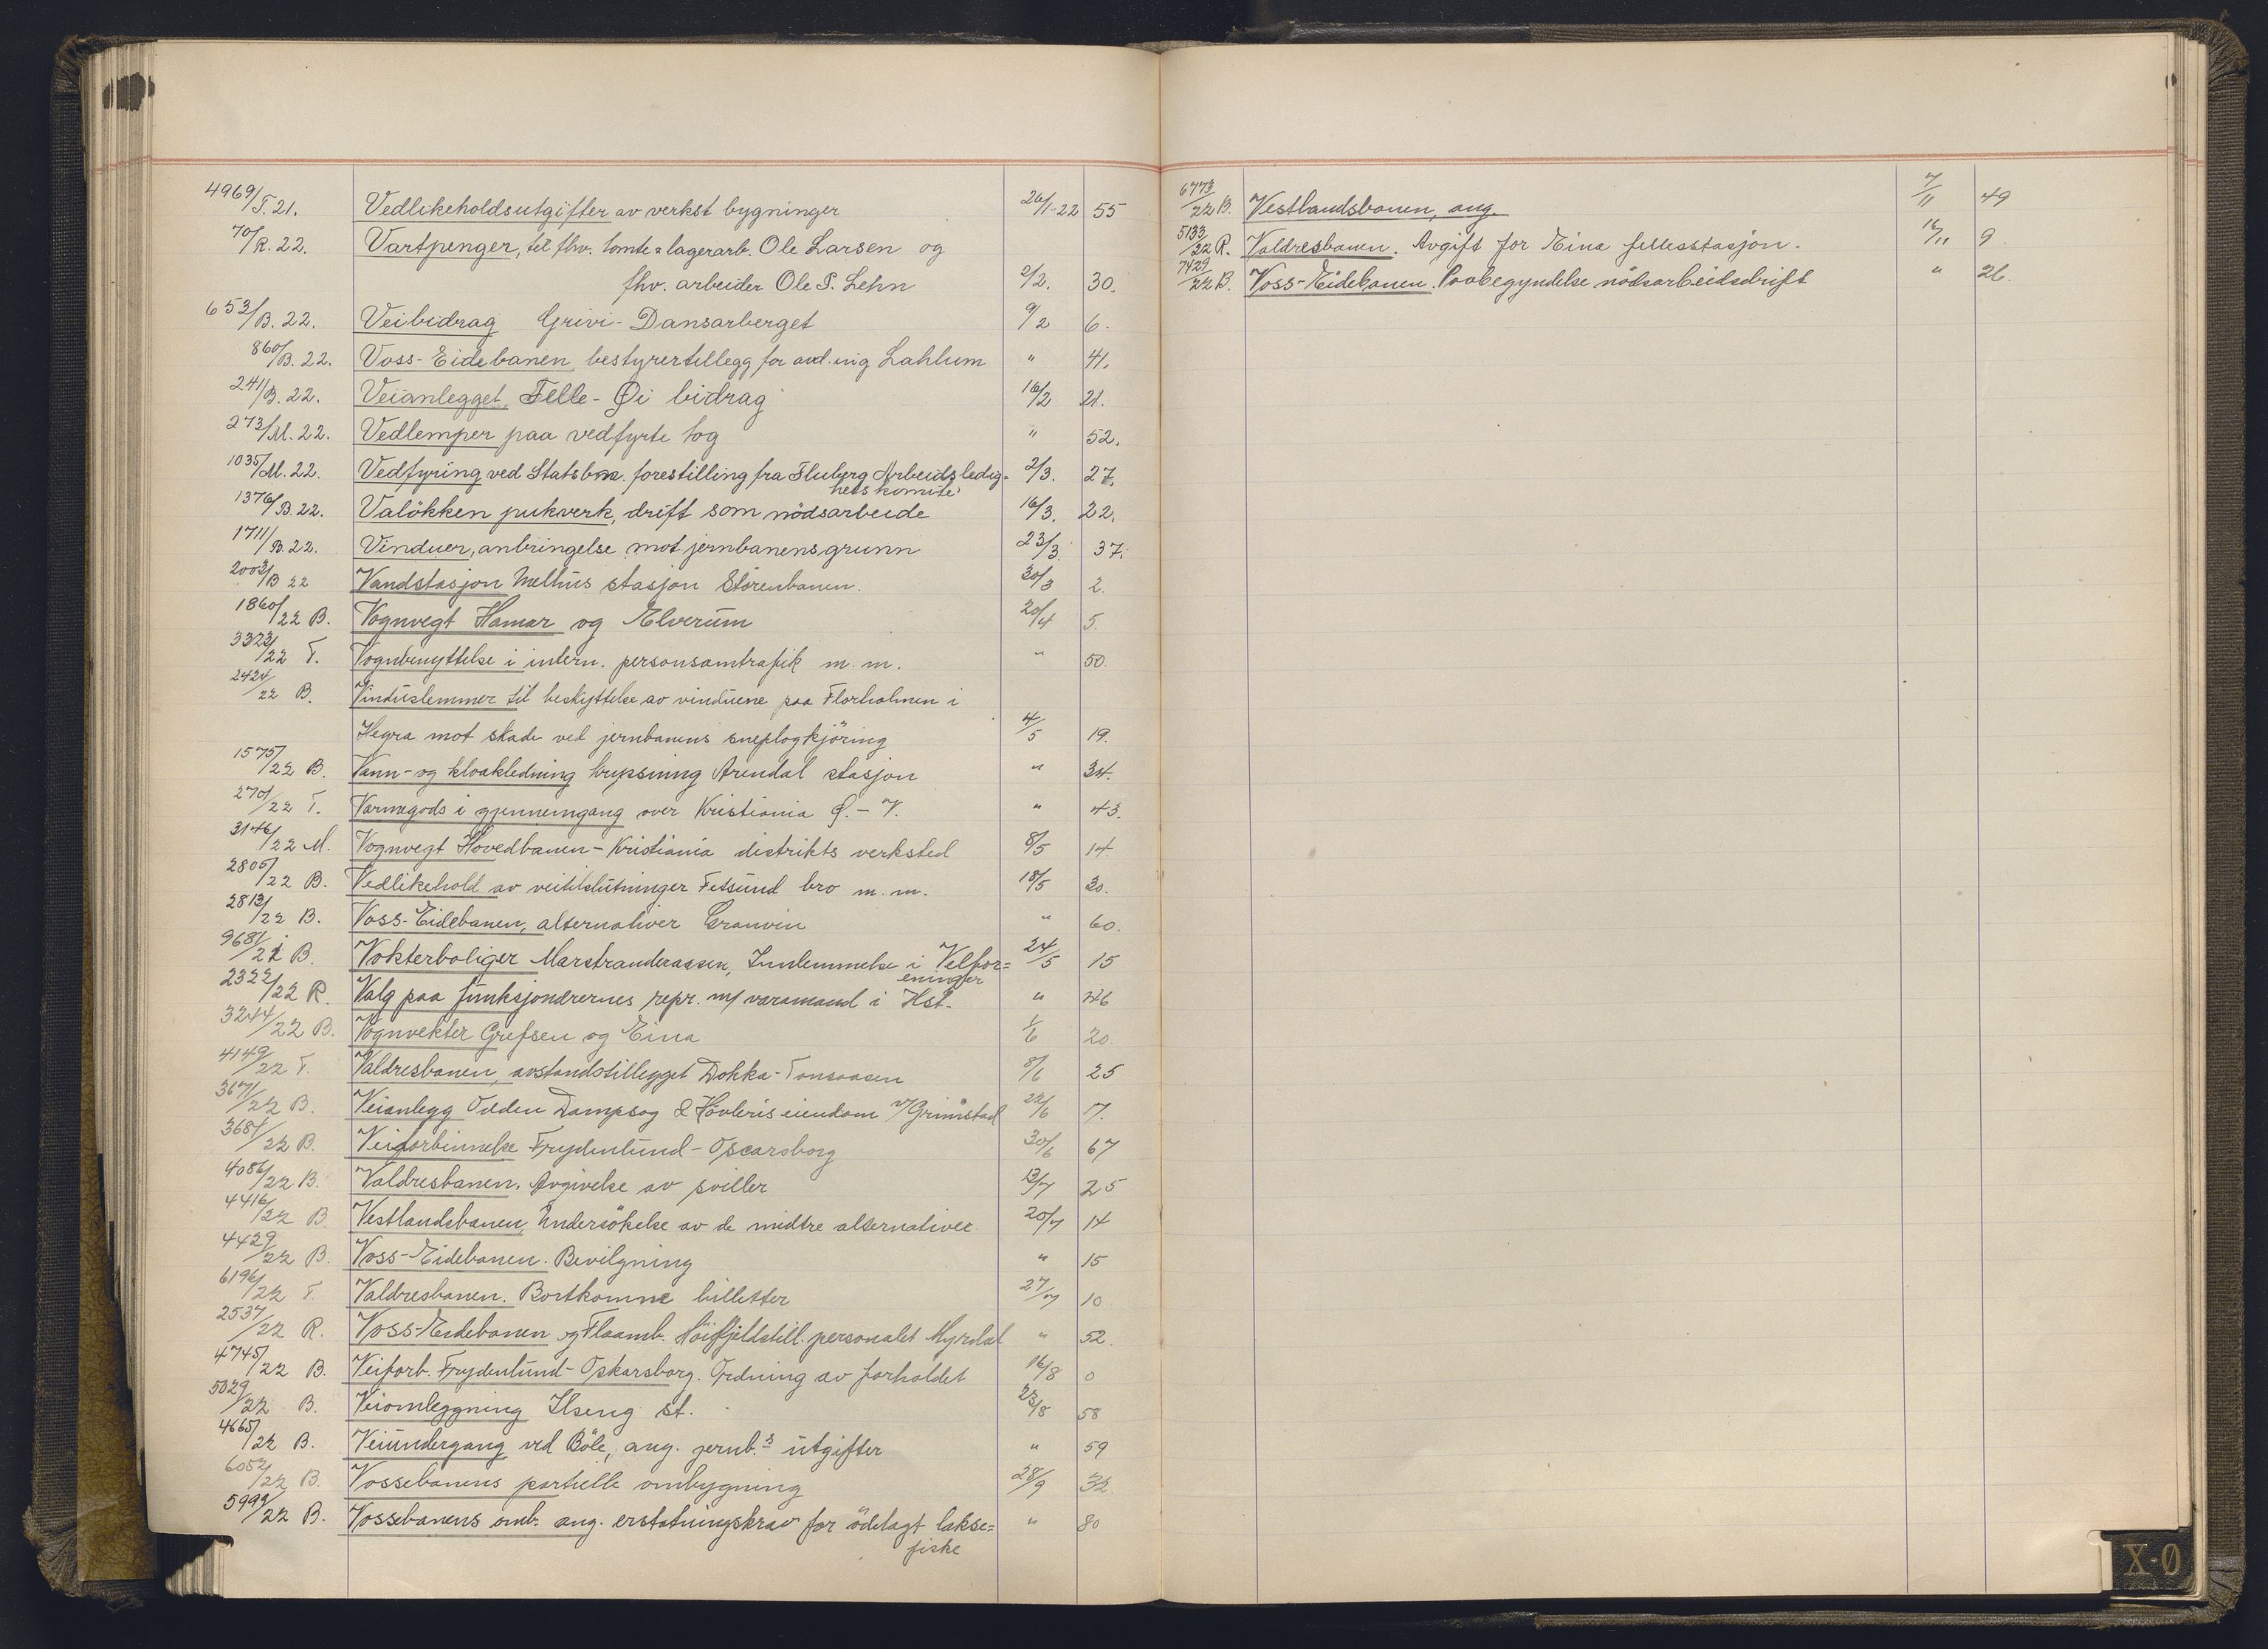 4969/T. 21. Vedlikeholdsutgifter av verkst bygninger 26/1-22 55
70/R. 22. Vartpenger, til fhv. tomte & lagerarb. Ole Larsen og
fhv. arbeider Ole P. Lehn 2/2. 30.
653/B. 22. Veibidrag Grivi-Dansarberget 9/2 6.
860/B. 22. Voss-Eidebanen, bestyrertillegg for avd. ing Lahlum " 41.
241/B. 22. Veianlegget, Felle-Øi bidrag 16/2 21.
273/M. 22. Vedlemper paa vedfyrte tog " 52.
1035/M. 22. Vedfyring ved Statsbne. forestilling fra Fluberg Arbeidsledig= 2/3. 27.
hets komite
1376/B. 22. Valökken pukverk, drift som nödsarbeide 16/3. 22.
1711/B. 22. Vinduer, anbringelse mot jernbanens grunn 23/3. 37.
2003/B 22 Vandstasjon Melhus stasjon Störenbanen. 30/3 2.
1860/22 B. Vognvegt Hamar og Elverum 20/4 5.
3323/22 T. Vognbenyttelse i intern. personsamtrafik m. m. " 50.
2424/22 B. Vinduslemmer til beskyttelse av vinduene paa Florholmen i
Hegra mot skade ved jernbanens sneplogkjöring 4/5 19.
1575/22 B. Vann- og kloakledning krysning Arendal stasjon " 34.
2701/22 T. Varmegods i gjennemgang over Kristiania Ø. - V. " 43.
3146/22 M. Vognvegt Hovedbanen - Kristiania distrikts verksted 8/5 14.
2805/22 B. Vedlikehold av veitilslutninger Fetsund bro m. m. 18/5 30.
2813/22 B. Voss-Eidebanen, alternativer Granvin " 60.
9681/21 B. Vokterboliger Marstranderassen, Innlemmelse i Velfor= 24/5 15
eninger
2322/22 R. Valg paa funksjonærernes repr. m/ varamand i Hst. " 46
3244/22 B. Vognvekter Grefsen og Eina 1/6 20.
4149/22 T. Valdresbanen, avstandstillegget Dokka-Tonsaasen 8/6 25
3671/22 B. Veianlegg Odden Dampsag & Hövleris eiendom v/ Grimstad 22/6 17.
3681/22 B. Veiforbinnelse Frydenlund - Oscarsborg 30/6 67
4086/22 B. Valdresbanen. Avgivelse av sviller 13/7 25
4416/22 B. Vestlandsbanen, Undersökelse av de midtre alternativer. 20/7 14
4429/22 B. Voss-Eidebanen. Bevilgning " 15
6196/22 T. Valdresbanen. Bortkomne billetter 27/7 10
2537/22 R. Voss-Eidebanen og Flaamb. Höifjeldstill. personalet Myrdal " 52.
4745/22 B. Veiforb. Frydenlund - Oskarsborg. Ordning av forholdet 16/8 0
5029/22 B. Veiomleggning Ilseng st. 23/8 58
4665/22 B. Veiundergang ved Böle, ang. jernb.s utgifter " 59
6052/22 B. Vossebanens partielle ombygning 28/9 32.
5999/22 B. Vossebanens omb. ang. erstatningskrav for ödelagt lakse= " 80
fiske
6773/22 B. Vestlandsbanen, ang. 7/11 49
5133/22 R. Valdresbanen. Avgift for Eina fellesstasjon. 16/11 9
7429/22 B. Voss-Eidebanen. Paabegyndelse nödsarbeidsdrift " 26.
X-Ø